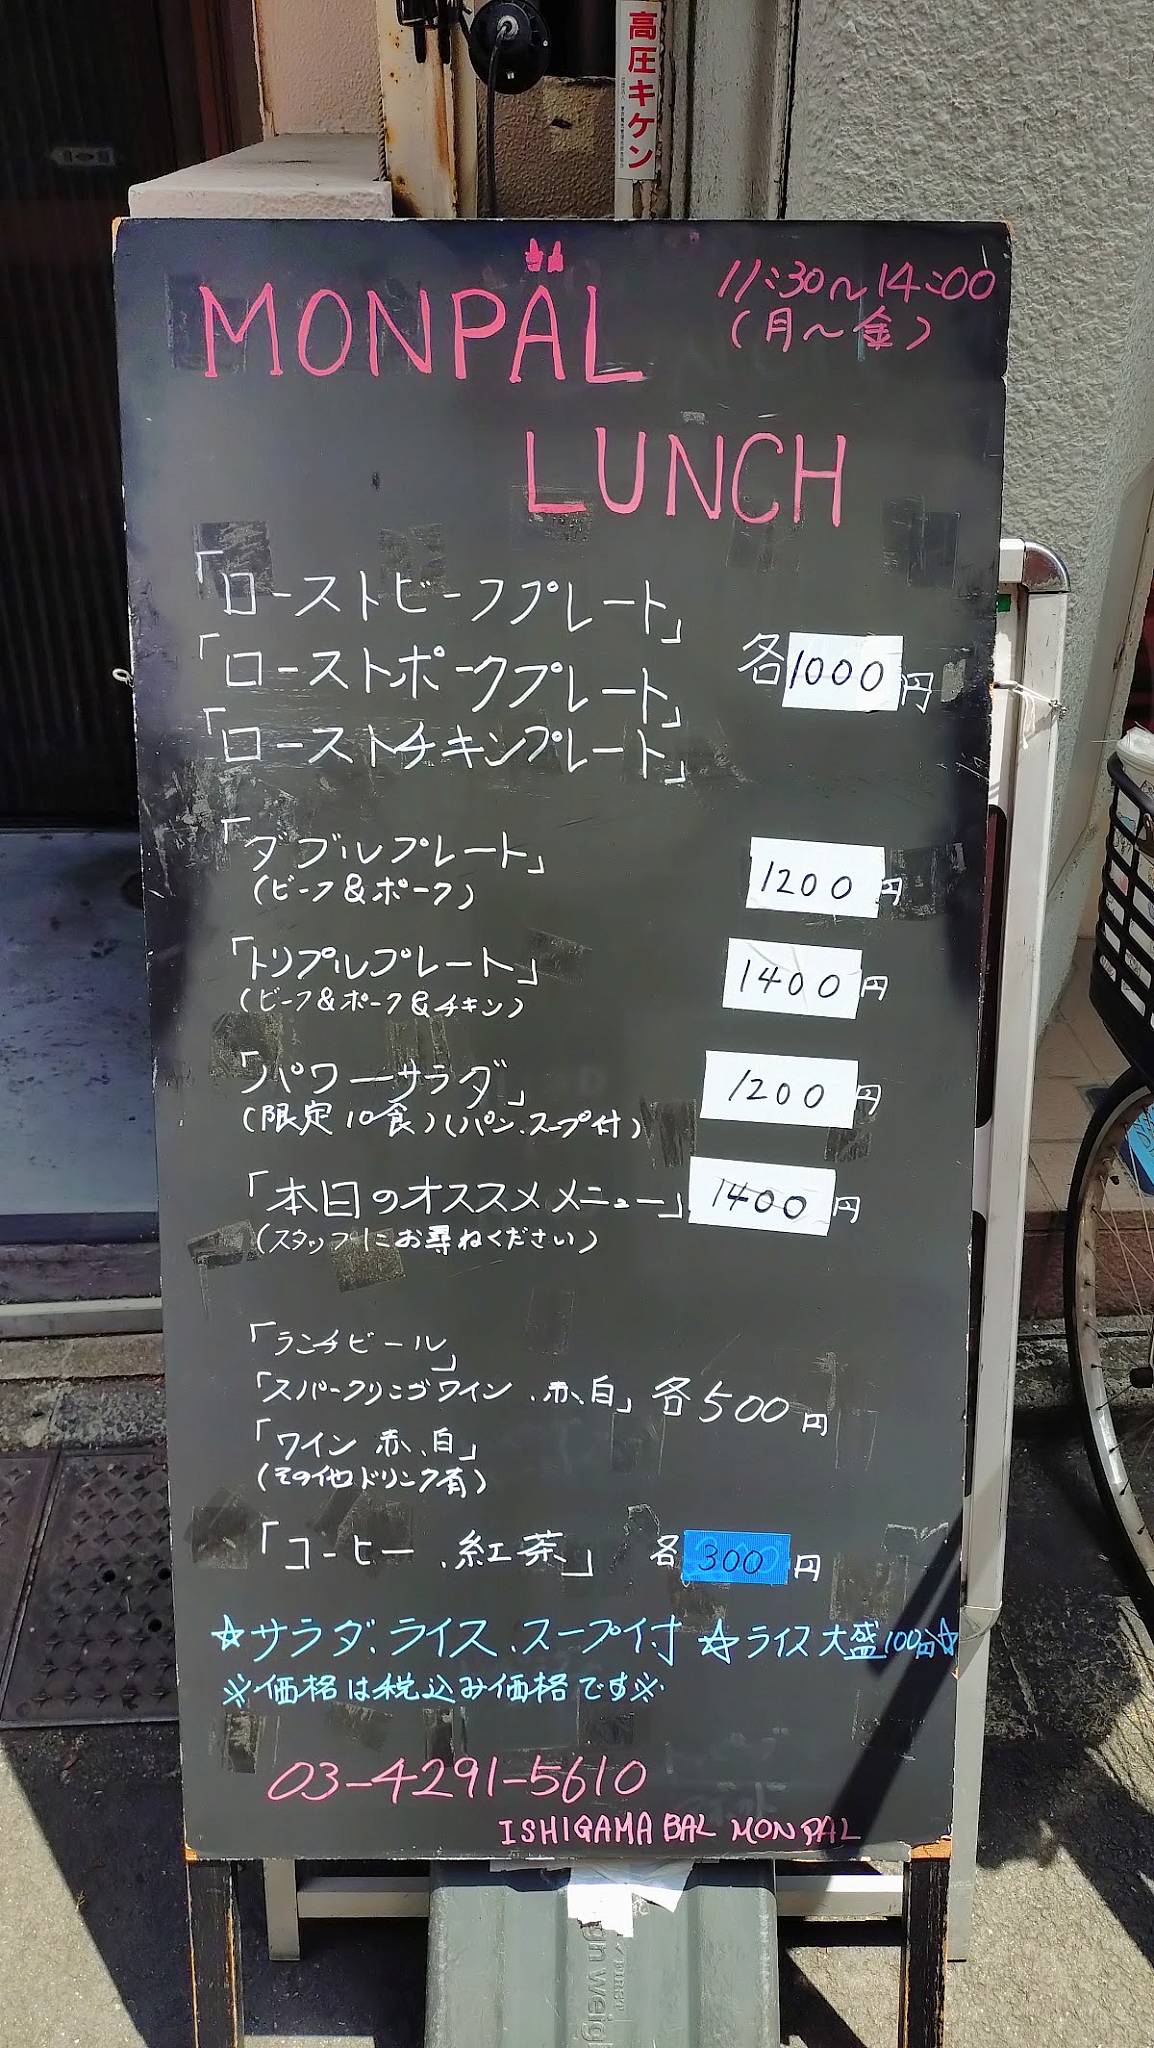 高圧キケン
MONPAL
11:30〜14:00
(月〜金)
LUNCH
「ローストビーフプレート」
「ローストポークプレート」
各1000円
「ローストチキンプレート」
「ダブルプレート」
1200円
(ビーフ&ポーク)
「トリプルプレート」
1400円
(ビーフ&ポーク&チキン)
「パワーサラダ」
1200円
(限定10食)(パン、スープ付)
「本日のオススメメニュー」1400円
(スタッフにお尋ねください)
「ランチビール」
「スパークリングワイン、赤、白」各500円
「ワイン 赤、白」
(その他ドリンク有)
「コーヒー、紅茶」 各300円
☆サラダ、ライス、スープ付 ☆ライス大盛100円☆
※価格は税込み価格です※
03-4291-5610
ISHIGAMA BAL MONPAL